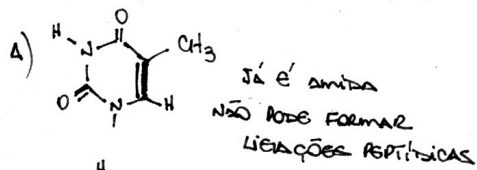 A)
O
H
N
CH3
O
N
H
H
JÁ É AMIDA
NÃO PODE FORMAR
LIGAÇÕES PEPTÍDICAS